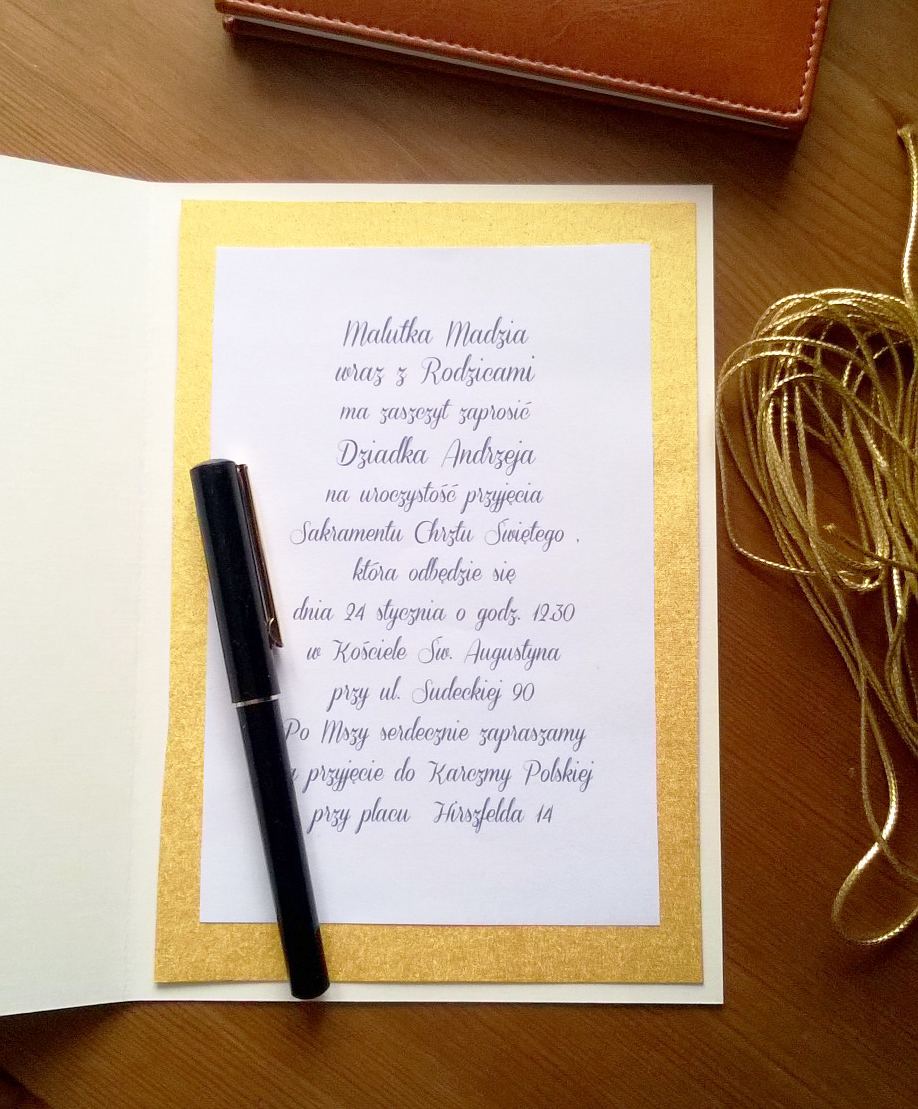 Malutka Madzia
wraz z Rodzicami
ma zaszczyt zaprosić
Dziadka Andrzeja
na uroczystość przyjęcia
Sakramentu Chrztu Świętego .
która odbędzie się
dnia 24 stycznia o godz. 12.30
w Kościele Św. Augustyna
przy ul. Sudeckiej 90
Po Mszy serdecznie zapraszamy
przyjęcie do Karczmy Polskiej
przy placu Hirszfelda 14